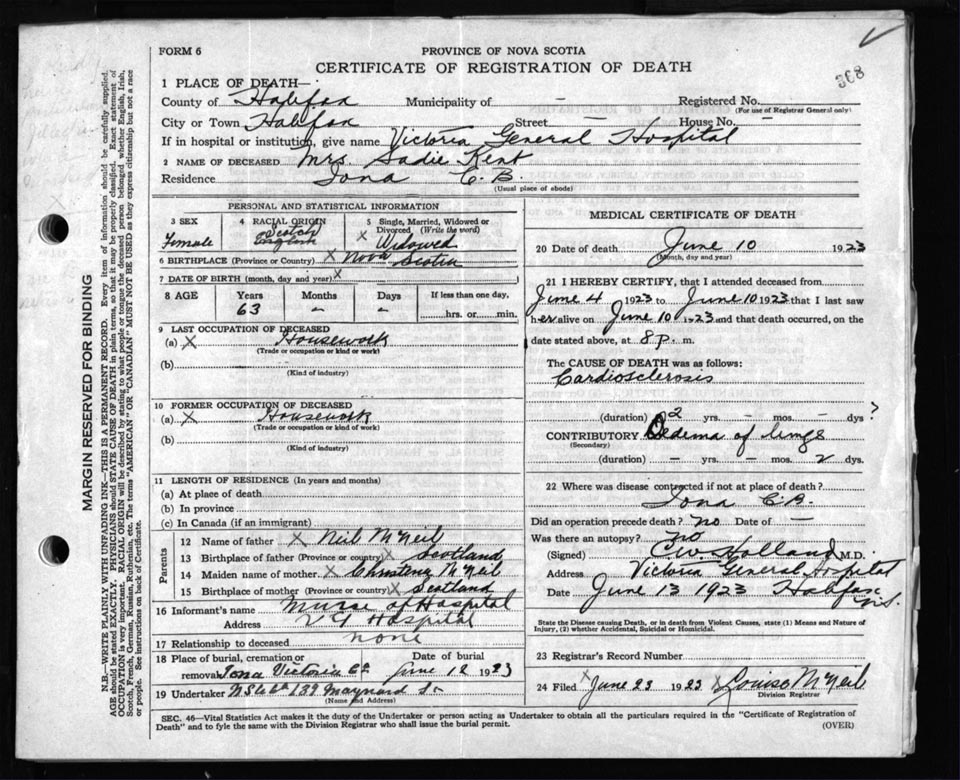 FORM 6
PROVINCE OF NOVA SCOTIA
CERTIFICATE OF REGISTRATION OF DEATH
368
1 PLACE OF DEATH—
County of Halifax Municipality of — Registered No.
(For use of Registrar General only)
City or Town Halifax Street — House No. —
If in hospital or institution, give name Victoria General Hospital
2 NAME OF DECEASED Mrs. Sadie Kent
Residence Iona C.B.
(Usual place of abode)
PERSONAL AND STATISTICAL INFORMATION
3 SEX
Female
4 RACIAL ORIGIN
Scotch
English
5 Single, Married, Widowed or Divorced (Write the word)
X Widowed
6 BIRTHPLACE (Province or Country) X Nova Scotia
7 DATE OF BIRTH (month, day and year) X
8 AGE Years Months Days If less than one day,
63 - - hrs. or min.
9 LAST OCCUPATION OF DECEASED
(a) X Housework
(Trade or occupation or kind or work)
(b)
(Kind of industry)
10 FORMER OCCUPATION OF DECEASED
(a) X Housework
(Trade or occupation or kind of work)
(b)
(Kind of industry)
11 LENGTH OF RESIDENCE (In years and months)
(a) At place of death
(b) In province
(c) In Canada (if an immigrant)
Parents
12 Name of father X Neil McNeil
13 Birthplace of father (Province or country) X Scotland
14 Maiden name of mother X Christena McNeil
15 Birthplace of mother (Province or country) X Scotland
16 Informant's name Nurse of Hospital
Address V G Hospital
17 Relationship to deceased none
18 Place of burial, cremation or removal Iona Victoria Co Date of burial June 12 1923
19 Undertaker 139 Maynard St
(Name and Address)
MEDICAL CERTIFICATE OF DEATH
20 Date of death June 10 1923
(Month, day and year)
21 I HEREBY CERTIFY, that I attended deceased from
June 4 1923 to June 10 1923 that I last saw
her alive on June 10 1923 and that death occurred, on the
date stated above, at 8 p. m.
The CAUSE OF DEATH was as follows:
Cardiosclerosis
(duration) 2 yrs. — mos. — dys ?
CONTRIBUTORY Oedema of lungs
(Secondary)
(duration) — yrs. — mos. 2 dys.
22 Where was disease contracted if not at place of death?
Iona C.B.
Did an operation precede death? no Date of —
Was there an autopsy? no
(Signed) C.W. Holland M.D.
Address Victoria General Hospital
Date June 13 1923 Halifax N.S.
State the Disease causing Death, or in death from Violent Causes, state (1) Means and Nature of Injury, (2) whether Accidental, Suicidal or Homicidal.
23 Registrar's Record Number
24 Filed X June 23 1923 X Louise McNeil
Division Registrar
SEC. 46—Vital Statistics Act makes it the duty of the Undertaker or person acting as Undertaker to obtain all the particulars required in the "Certificate of Registration of
Death" and to fyle the same with the Division Registrar who shall issue the burial permit.
(OVER)
MARGIN RESERVED FOR BINDING
N.B.—WRITE PLAINLY WITH UNFADING INK—THIS IS A PERMANENT RECORD. Every item of information should be carefully supplied.
AGE should be stated EXACTLY. PHYSICIANS should STATE CAUSE OF DEATH in plain terms, so that it may be properly classified. Exact statement of
OCCUPATION is very important. RACIAL ORIGIN will be described by stating to what people or tongue the deceased person belonged whether English, Irish,
Scotch, French, German, Russian, Ruthenian, etc. The terms "AMERICAN" OR "CANADIAN" MUST NOT BE USED as they express citizenship but not a race
or people. See instructions on back of Certificate.